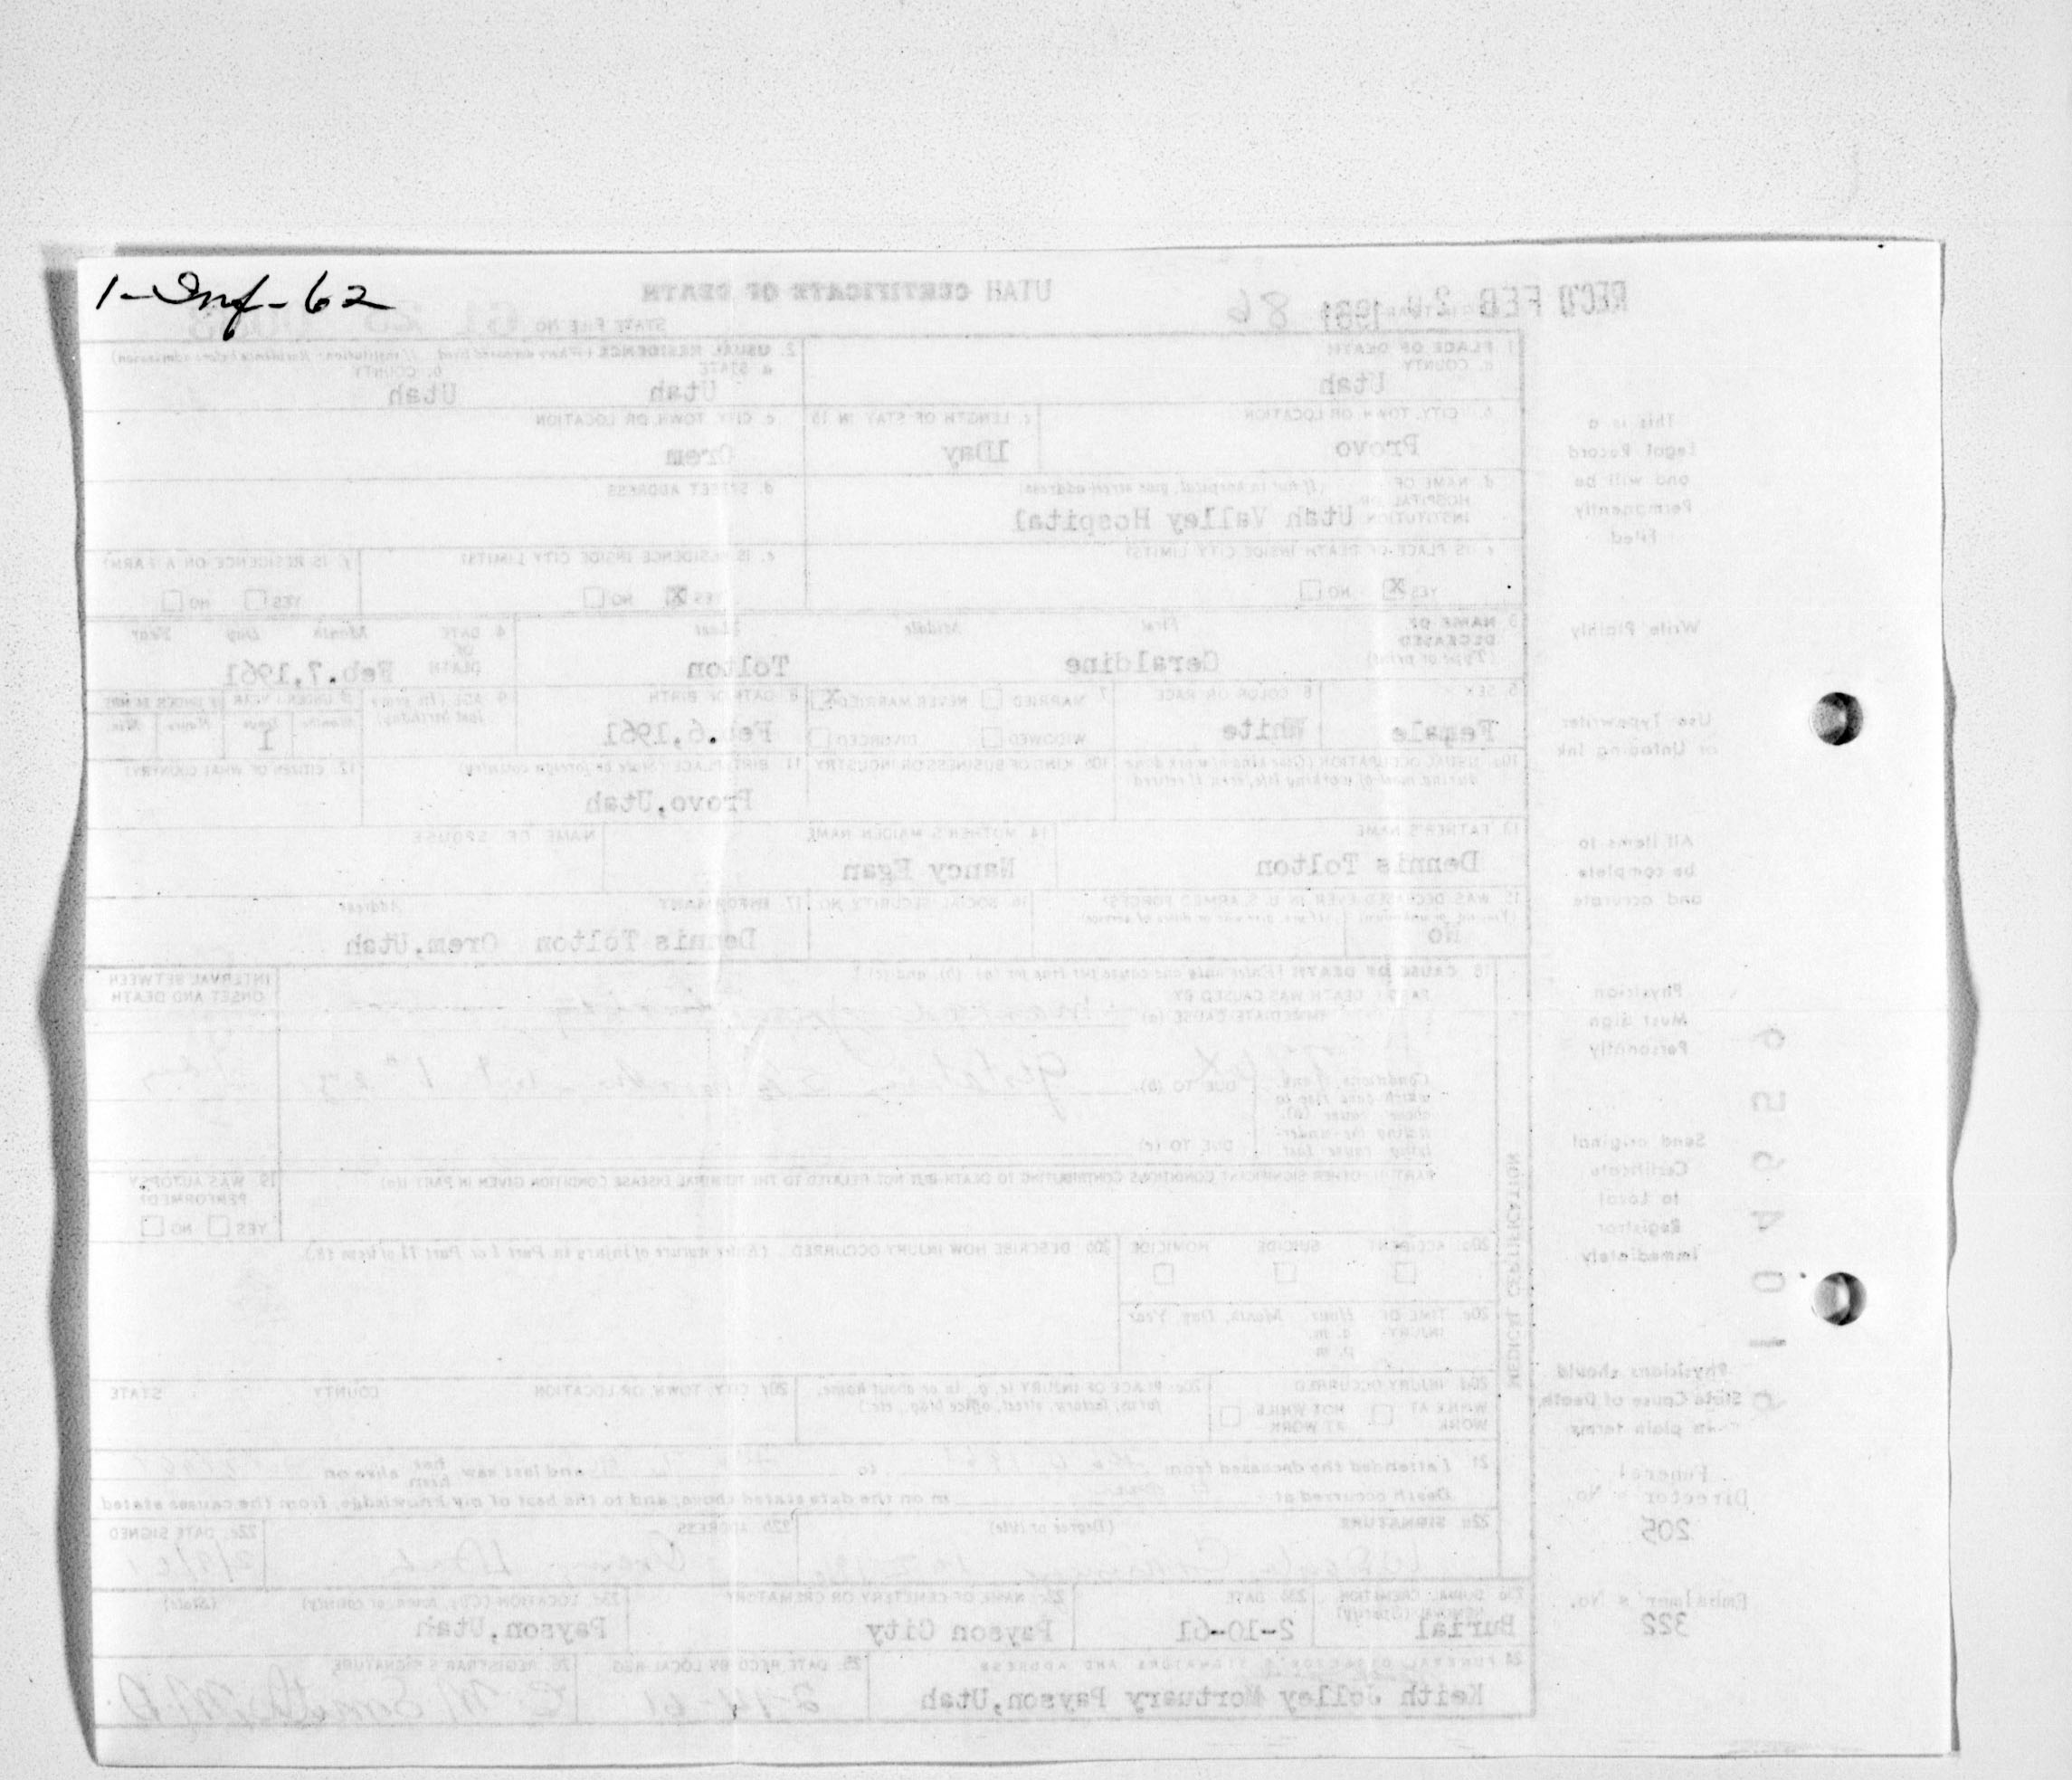 1-Inf-62
REC'D FEB 20 1961
86
UTAH CERTIFICATE OF DEATH
STATE FILE NO.
1. PLACE OF DEATH
a. COUNTY
Utah
2. USUAL RESIDENCE (Where deceased lived. If institution: Residence before admission)
a. STATE
b. COUNTY
Utah
Utah
b. CITY, TOWN OR LOCATION
Provo
c. LENGTH OF STAY IN 1b
1Day
c. CITY, TOWN, OR LOCATION
Orem
d. NAME OF HOSPITAL OR INSTITUTION (If not in hospital, give street address)
Utah Valley Hospital
d. STREET ADDRESS
e. IS PLACE OF DEATH INSIDE CITY LIMITS?
YES X NO
e. IS RESIDENCE INSIDE CITY LIMITS?
YES X NO
f. IS RESIDENCE ON A FARM?
YES NO
3. NAME OF DECEASED (Type or print)
First Middle Last
Geraldine Tolton
4. DATE OF DEATH Month Day Year
Feb.7,1961
5. SEX
Female
6. COLOR OR RACE
White
7. MARRIED NEVER MARRIED X
WIDOWED DIVORCED
8. DATE OF BIRTH
Feb.6,1961
9. AGE (In years last birthday)
IF UNDER 1 YEAR IF UNDER 24 HRS.
Months Days Hours Min.
1
10a. USUAL OCCUPATION (Give kind of work done during most of working life, even if retired)
10b. KIND OF BUSINESS OR INDUSTRY
11. BIRTHPLACE (State or foreign country)
Provo,Utah
12. CITIZEN OF WHAT COUNTRY?
13. FATHER'S NAME
Dennis Tolton
14. MOTHER'S MAIDEN NAME
Nancy Egan
NAME OF SPOUSE
15. WAS DECEASED EVER IN U.S. ARMED FORCES?
(Yes, no, or unknown) (If yes, give war or dates of service)
No
16. SOCIAL SECURITY NO.
17. INFORMANT Address
Dennis Tolton Orem,Utah
18. CAUSE OF DEATH (Enter only one cause per line for (a), (b), and (c).)
PART I. DEATH WAS CAUSED BY:
IMMEDIATE CAUSE (a)
INTERVAL BETWEEN ONSET AND DEATH
Conditions, if any, which gave rise to above cause (a), stating the underlying cause last.
DUE TO (b)
DUE TO (c)
PART II. OTHER SIGNIFICANT CONDITIONS CONTRIBUTING TO DEATH BUT NOT RELATED TO THE TERMINAL DISEASE CONDITION GIVEN IN PART I(a)
19. WAS AUTOPSY PERFORMED?
YES NO
20a. ACCIDENT SUICIDE HOMICIDE
20b. DESCRIBE HOW INJURY OCCURRED. (Enter nature of injury in Part I or Part II of item 18.)
20c. TIME OF INJURY Hour Month, Day, Year
a. m.
p. m.
20d. INJURY OCCURRED
WHILE AT WORK NOT WHILE AT WORK
20e. PLACE OF INJURY (e. g., in or about home, farm, factory, street, office bldg., etc.)
20f. CITY, TOWN, OR LOCATION COUNTY STATE
21. I attended the deceased from to and last saw her him alive on
Death occurred at m on the date stated above; and to the best of my knowledge, from the causes stated.
22a. SIGNATURE (Degree or title)
22b. ADDRESS
Orem, Utah
22c. DATE SIGNED
23a. BURIAL, CREMATION, REMOVAL (Specify)
Burial
23b. DATE
2-10-61
23c. NAME OF CEMETERY OR CREMATORY
Payson City
23d. LOCATION (City, town, or county) (State)
Payson,Utah
24. FUNERAL DIRECTOR'S SIGNATURE AND ADDRESS
Keith Jolley Mortuary Payson,Utah
25. DATE REC'D BY LOCAL REG.
2-14-61
26. REGISTRAR'S SIGNATURE
MEDICAL CERTIFICATION
This is a
Legal Record
and will be
Permanently
Filed
Write Plainly
Use Typewriter
or Unfading Ink
All items to
be complete
and accurate
Physician
Must sign
Personally
Send original
Certificate
to Local
Registrar
Immediately
Physicians should
State Cause of Death
in plain terms
Funeral
Director's No.
205
Embalmer's No.
322